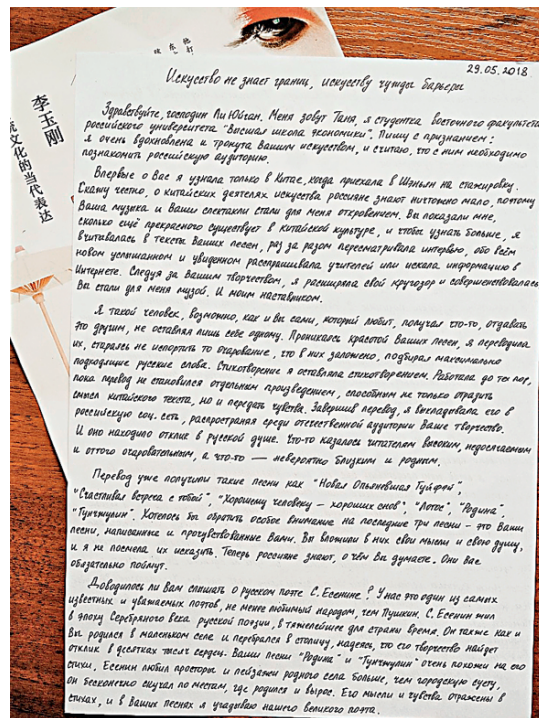 李玉刚
文化的当代表达
29.05.2018
Искусство не знает границ, искусству чужды барьеры
Здравствуйте, господин Ли Юйган. Меня зовут Таня, я студентка восточного факультета
российского университета "Высшая школа экономики". Пишу с признанием:
я очень вдохновлена и тронута Вашим искусством, и считаю, что с ним необходимо
познакомить российскую аудиторию.
Впервые о Вас я узнала только в Китае, когда приехала в Шэньян на стажировку.
Скажу честно, о китайских деятелях искусства россияне знают ничтожно мало, поэтому
Ваша музыка и Ваши спектакли стали для меня откровением. Вы показали мне,
сколько ещё прекрасного существует в китайской культуре, и чтобы узнать больше, я
вчитывалась в тексты Ваших песен, раз за разом пересматривала интервью, обо всём
новом услышанном и увиденном расспрашивала учителей или искала информацию в
Интернете. Следуя за Вашим творчеством, я расширяла свой кругозор и совершенствовалась.
Вы стали для меня музой. И моим наставником.
Я такой человек, возможно, как и Вы сами, который любит, получая что-то, отдавать
это другим, не оставляя лишь себе одному. Проникаясь красотой Ваших песен, я переводила
их, стараясь не испортить то очарование, что в них заложено, подбирая максимально
подходящие русские слова. Стихотворение я оставляла стихотворением. Работала до тех пор,
пока перевод не становился отдельным произведением, способным не только отразить
смысл китайского текста, но и передать чувства. Завершив перевод, я выкладывала его в
российскую соц. сеть, распространяя среди отечественной аудитории Ваше творчество.
И оно находило отклик в русской душе. Что-то казалось читателям высоким, недосягаемым
и оттого очаровательным, а что-то — невероятно близким и родным.
Перевод уже получили такие песни как "Новая Опьяневшая Гуйфэй",
"Счастливая встреча с тобой", "Хорошему человеку – хороших снов", "Лотос", "Родина",
"Гунчжулин". Хотелось бы обратить особое внимание на последние три песни – это Ваши
песни, написанные и прочувствованные Вами. Вы вложили в них свои мысли и свою душу,
и я не посмела их исказить. Теперь россияне знают, о чём Вы думаете. Они Вас
обязательно поймут.
Доводилось ли Вам слышать о русском поэте С. Есенине? У нас это один из самых
известных и уважаемых поэтов, не менее любимый народом, чем Пушкин. С. Есенин жил
в эпоху Серебряного века русской поэзии, в тяжелейшее для страны время. Он также как и
Вы родился в маленьком селе и перебрался в столицу, надеясь, что его творчество найдёт
отклик в десятках тысяч сердец. Ваши песни "Родина" и "Гунчжулин" очень похожи на его
стихи, Есенин любил просторы и пейзажи родного села больше, чем городскую суету,
он бесконечно скучал по местам, где родился и вырос. Его мысли и чувства отражены в
стихах, и в Ваших песнях я угадываю нашего великого поэта.